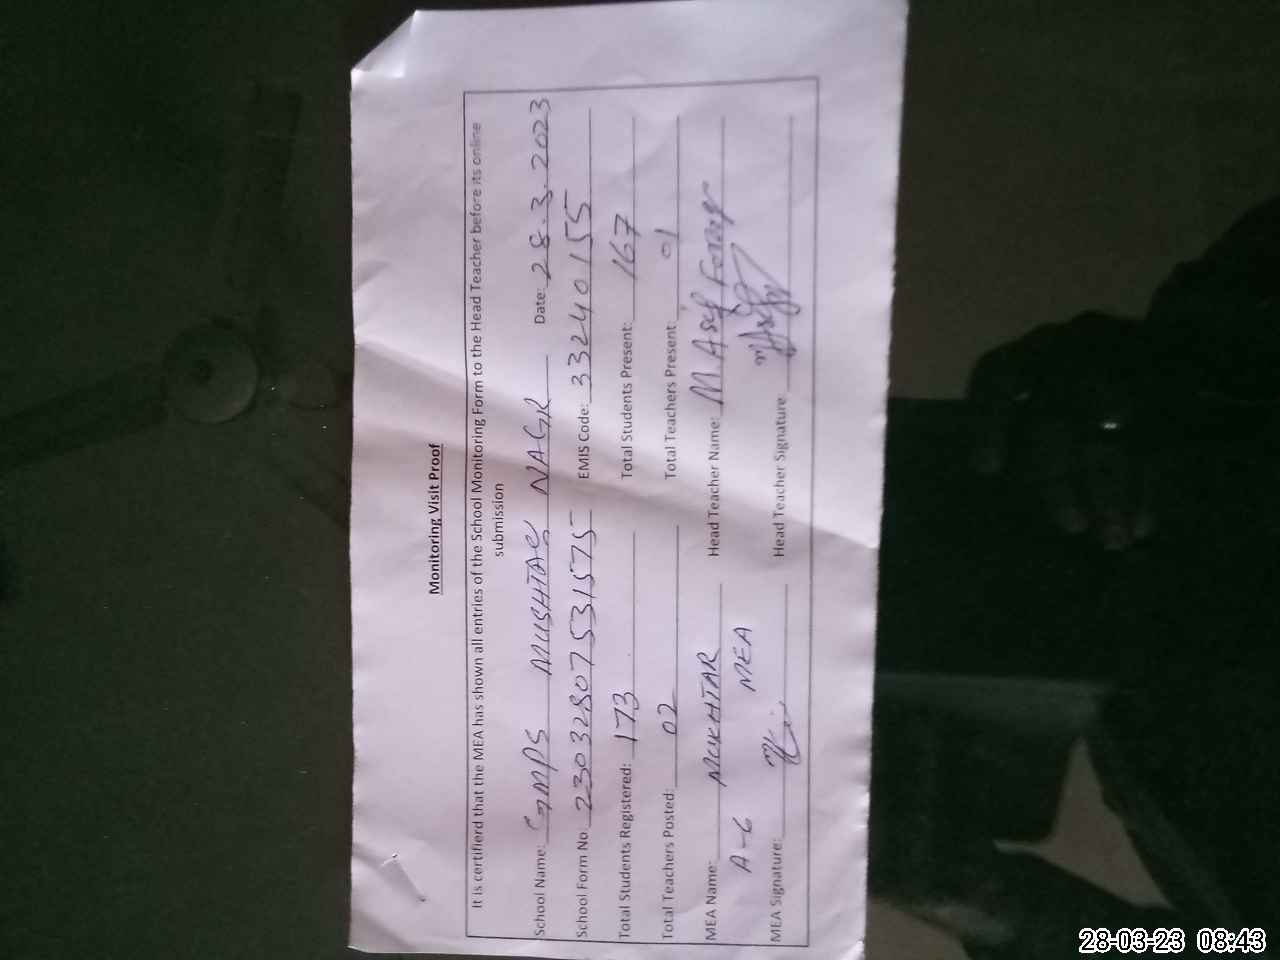 Monitoring Visit Proof
It is certifierd that the MEA has shown all entries of the School Monitoring Form to the Head Teacher before its online
submission
School Name: GMPS MUSHTAQ NAGR Date: 28.3.2023
School Form No. 23032807531575 EMIS Code: 33240155
Total Students Registered: 173 Total Students Present: 167
Total Teachers Posted: 02 Total Teachers Present: 01
MEA Name: MUKHTAR Head Teacher Name: M. Asif
A-6 MEA
MEA Signature: Head Teacher Signature:
28-03-23 08:43